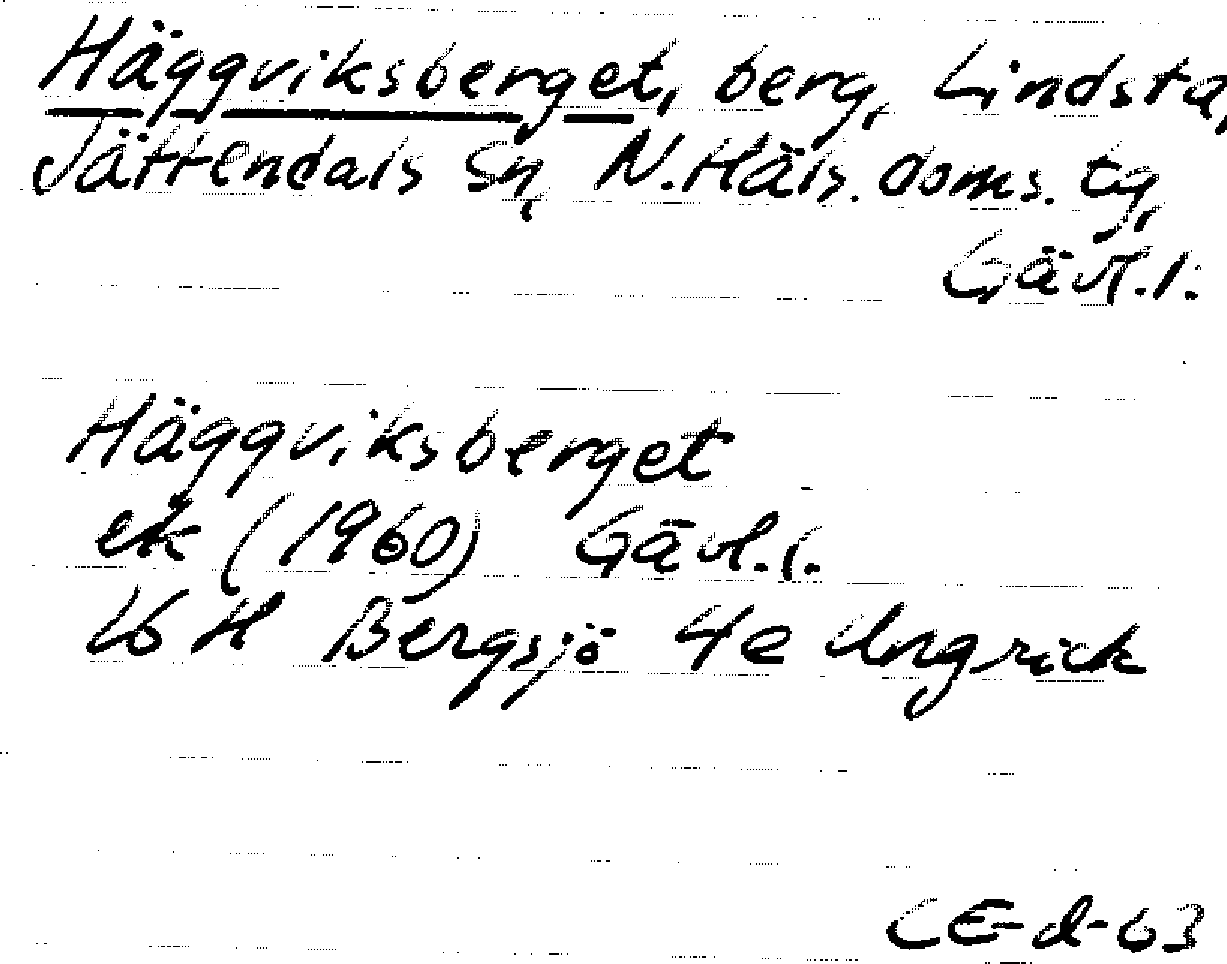 Häggviksberget, berg, Lindsta,
Jättendals Sn, N. Häls. doms. tg,
Gävl. l.
Häggviksberget
ek (1960) Gävl. l.
16 H Bergsjö 4e
CE-d-63